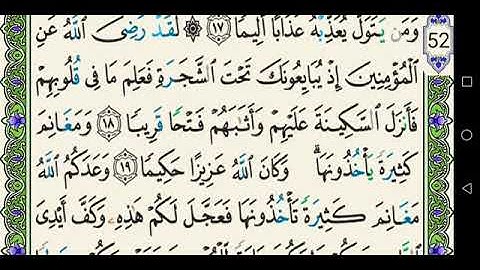 وَمَن يَتَوَلَّ يُعَذِّبْهُ عَذَابًا أَلِيمًا ١٧ ۞ لَّقَدْ رَضِىَ ٱللَّهُ عَنِ
52
ٱلْمُؤْمِنِينَ إِذْ يُبَايِعُونَكَ تَحْتَ ٱلشَّجَرَةِ فَعَلِمَ مَا فِى قُلُوبِهِمْ
فَأَنزَلَ ٱلسَّكِينَةَ عَلَيْهِمْ وَأَثَٰبَهُمْ فَتْحًا قَرِيبًا ١٨ وَمَغَانِمَ
كَثِيرَةً يَأْخُذُونَهَا ۗ وَكَانَ ٱللَّهُ عَزِيزًا حَكِيمًا ١٩ وَعَدَكُمُ ٱللَّهُ
مَغَانِمَ كَثِيرَةً تَأْخُذُونَهَا فَعَجَّلَ لَكُمْ هَٰذِهِۦ وَكَفَّ أَيْدِىَ